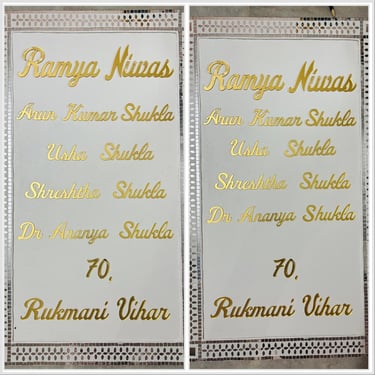 Ramya Niwas
Arun Kumar Shukla
Usha Shukla
Shreshtha Shukla
Dr Ananya Shukla
70,
Rukmani Vihar
Ramya Niwas
Arun Kumar Shukla
Usha Shukla
Shreshtha Shukla
Dr Ananya Shukla
70,
Rukmani Vihar